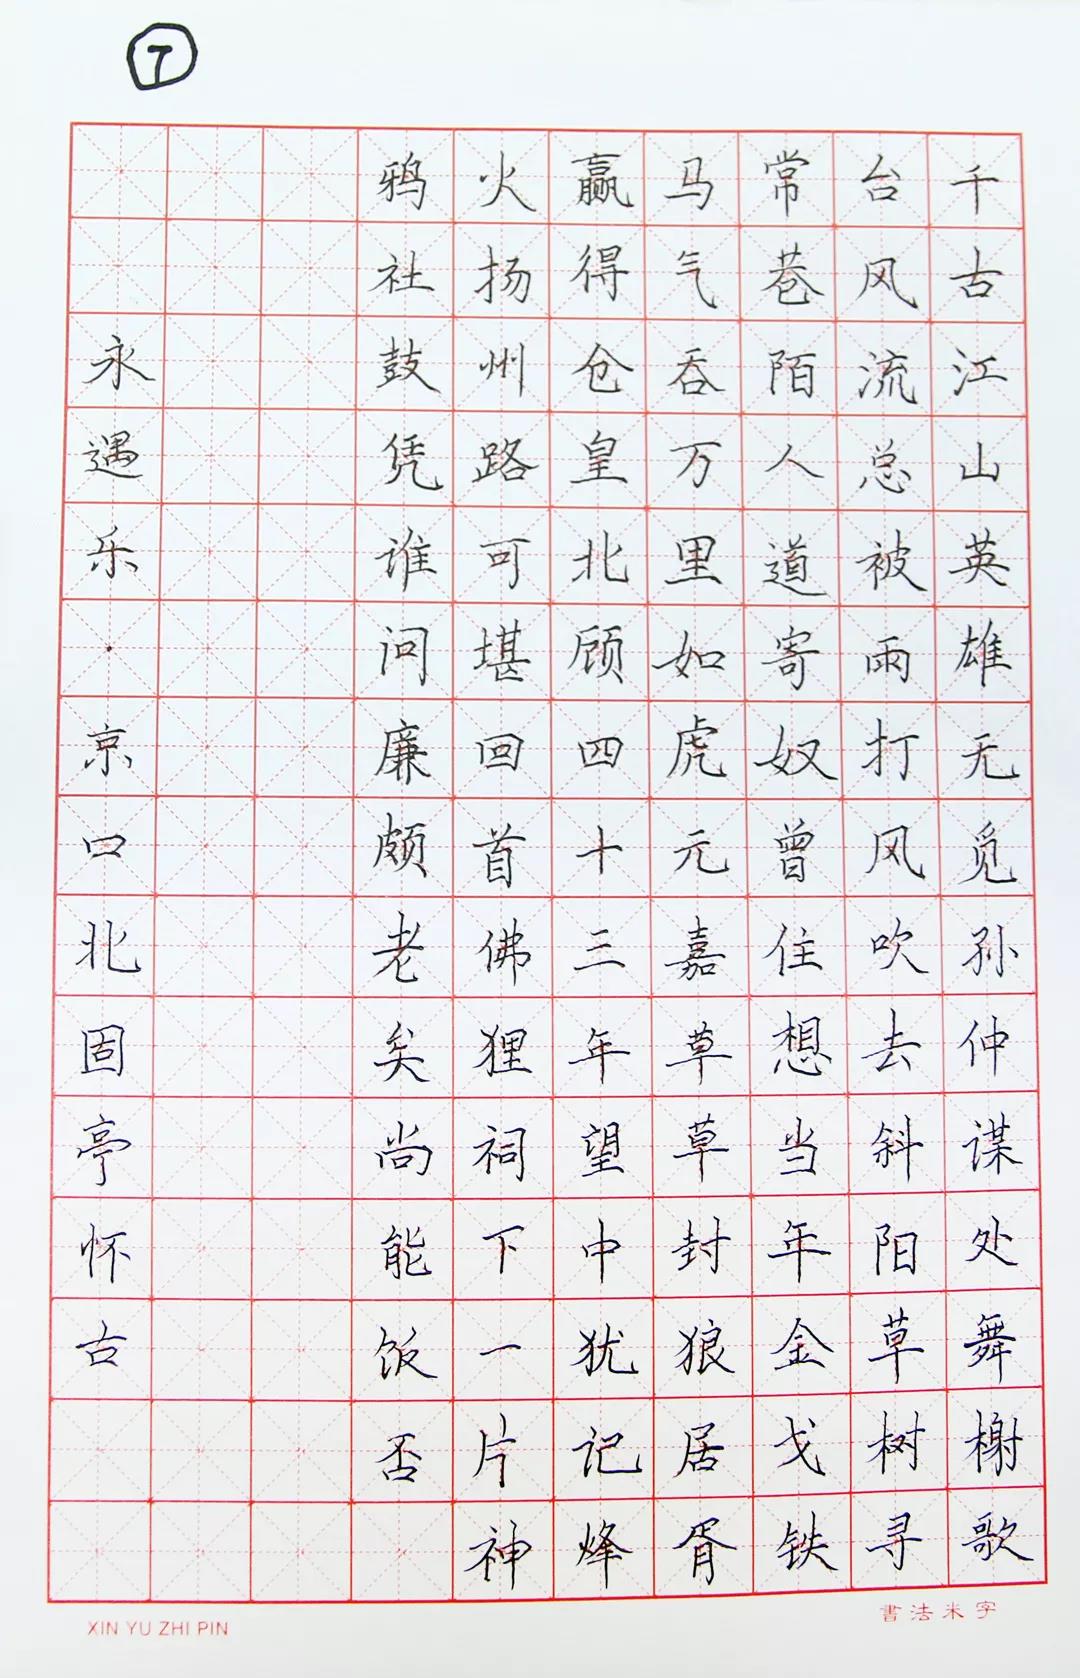 ⑦
千古江山英雄无觅孙仲谋处舞榭歌
台风流总被雨打风吹去斜阳草树寻
常巷陌人道寄奴曾住想当年金戈铁
马气吞万里如虎元嘉草草封狼居胥
赢得仓皇北顾四十三年望中犹记烽
火扬州路可堪回首佛狸祠下一片神
鸦社鼓凭谁问廉颇老矣尚能饭否
永遇乐·京口北固亭怀古
XIN YU ZHI PIN
書法米字